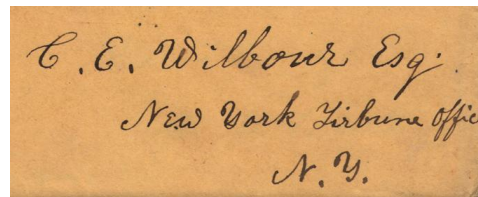 C. E. Wilbour Esq.
New York Tribune Offic
N. Y.